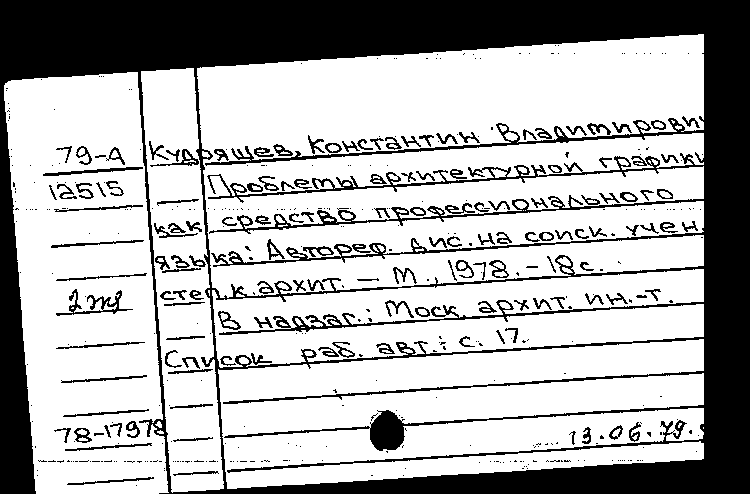 79-А Кудрящев, Константин Владимирович
12515 Проблемы архитектурной графики
как средство профессионального
языка: Автореф. дис. на соиск. учен.
2 экз степ. к. архит. — М., 1978. – 18 с.
В надзаг.: Моск. архит. ин.-т.
Список раб. авт.: с. 17.
78-17978 13.06.79.